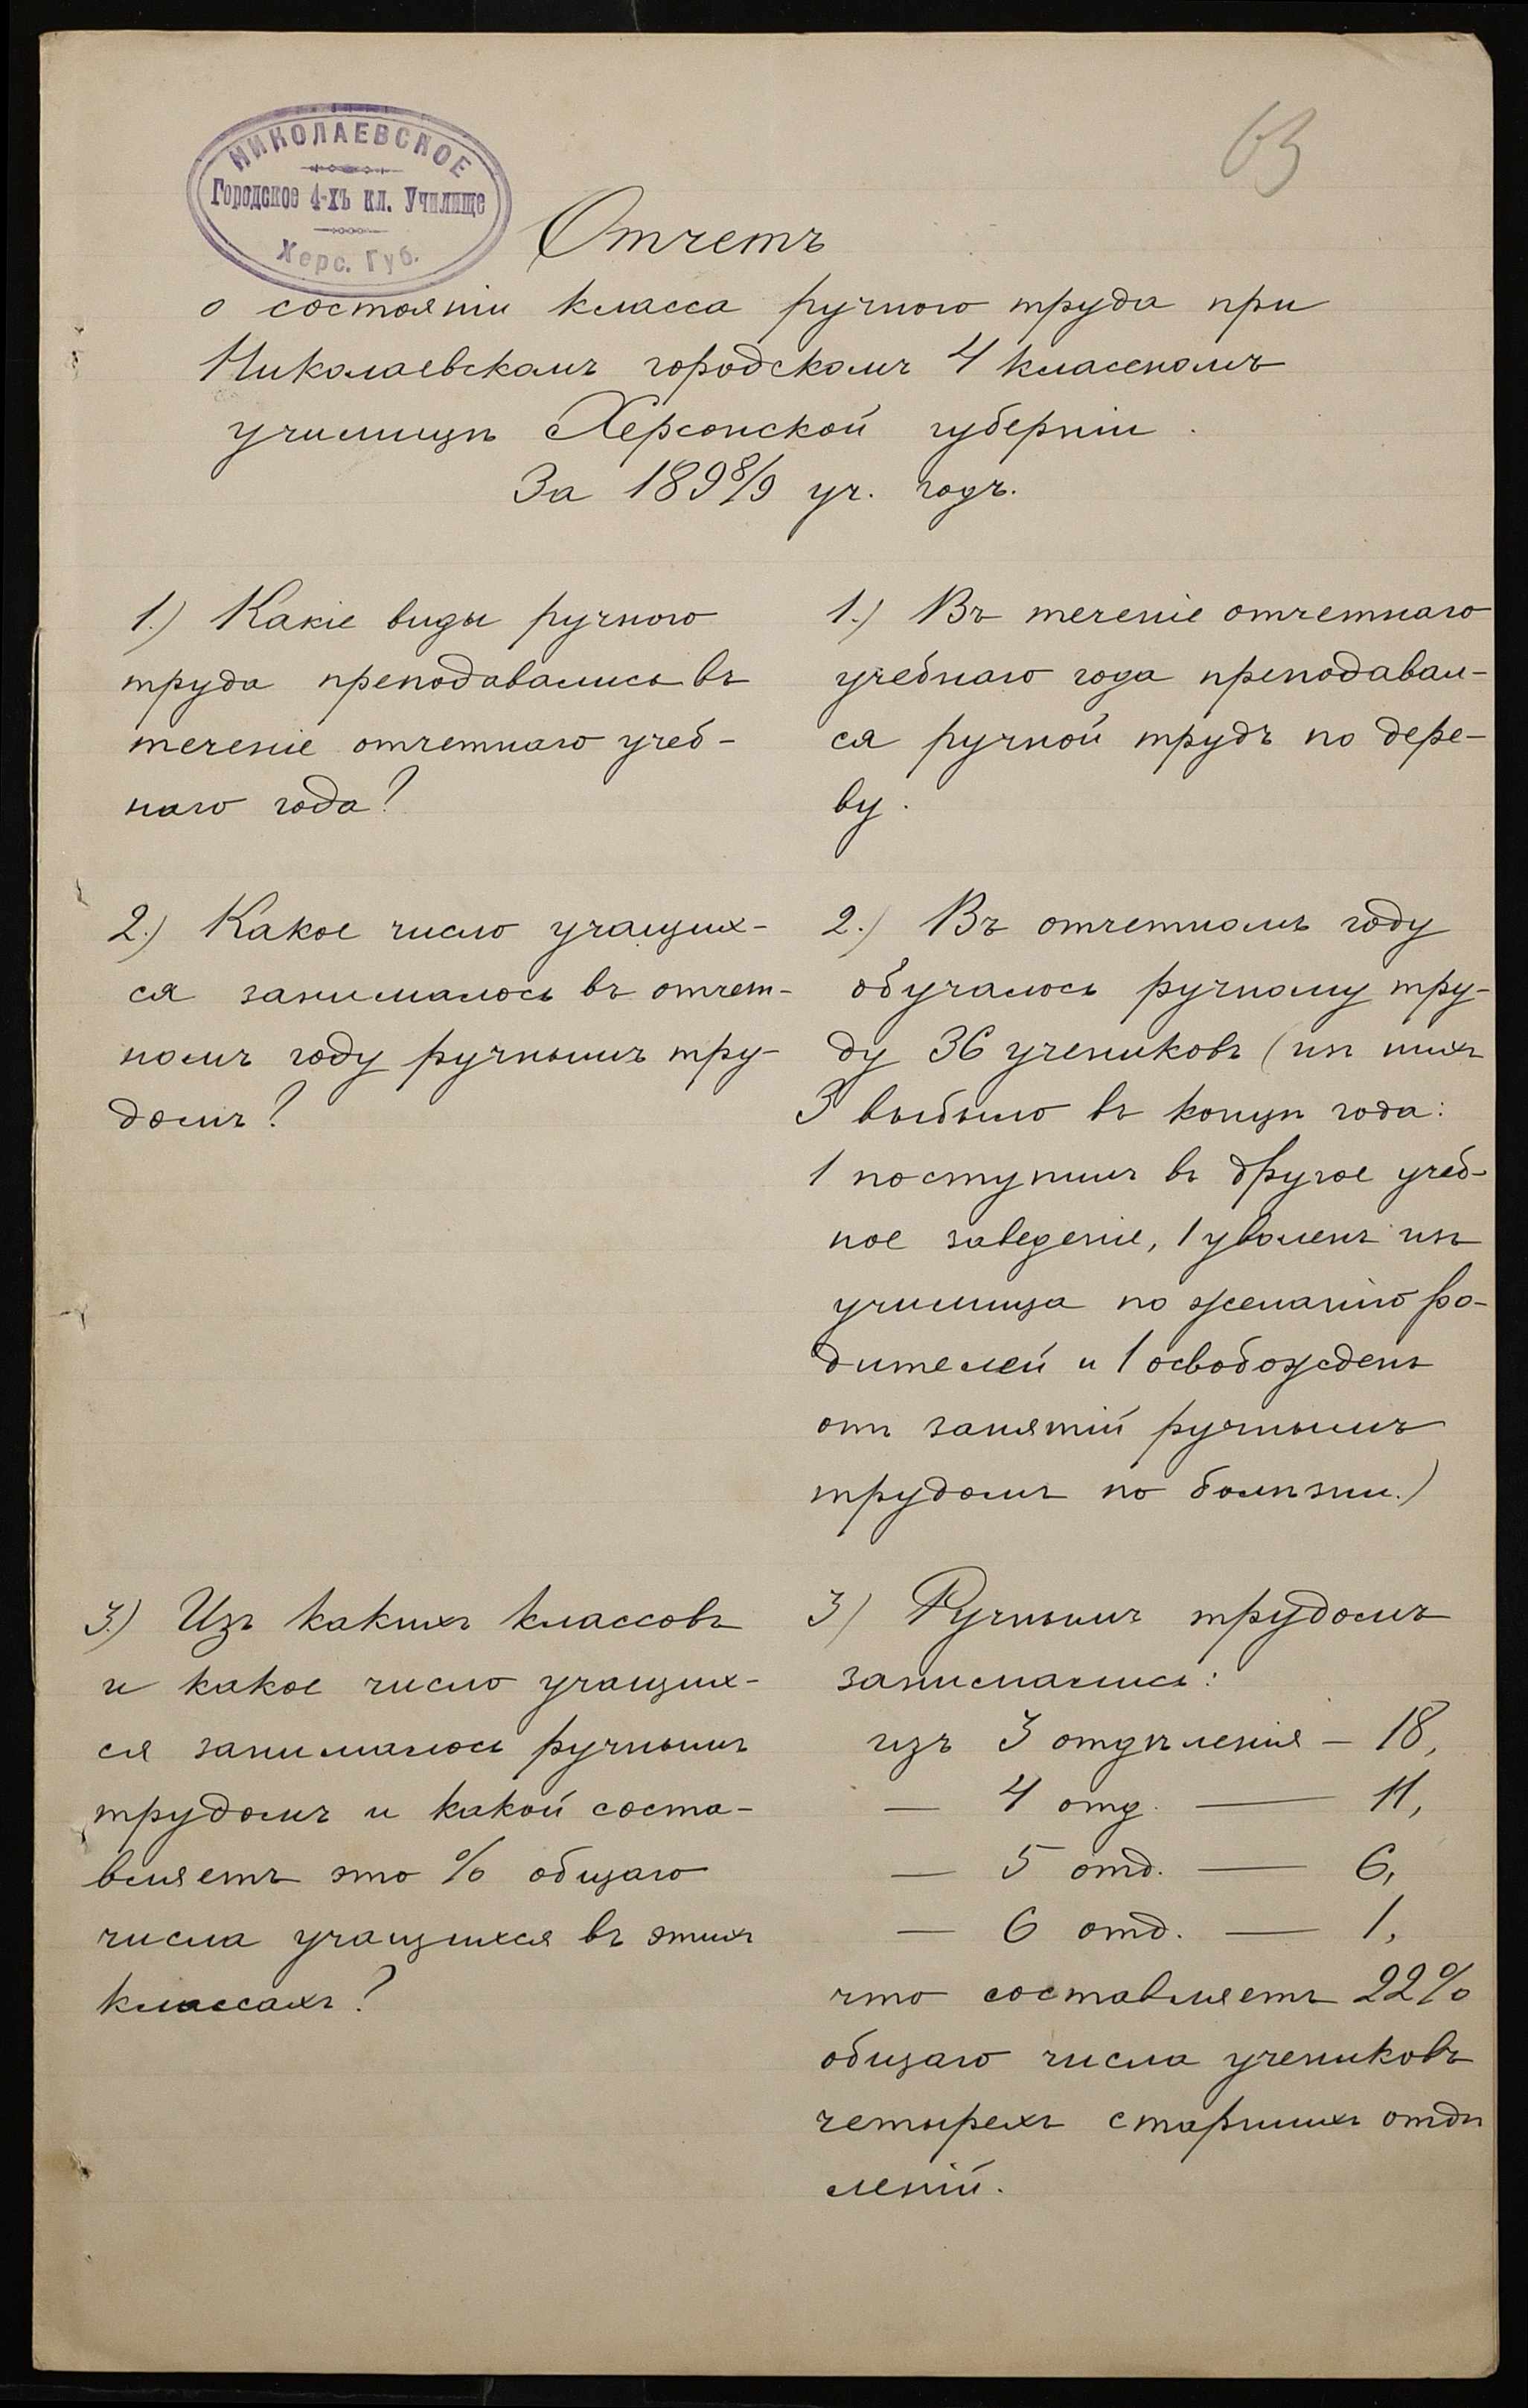 63
НИКОЛАЕВСКОЕ
Городское 4-хъ кл. Училище
Херс. Губ.
Отчетъ
о состояніи класса ручного труда при
Николаевскомъ городскомъ 4 классномъ
училищѣ Херсонской губерніи.
За 1898/9 уч. годъ.
1.) Какіе виды ручного
труда преподавались въ
теченіе отчетнаго учеб-
наго года?
1.) Въ теченіе отчетнаго
учебнаго года преподавал-
ся ручной трудъ по дере-
ву.
2.) Какое число учащих-
ся занималось въ отчет-
номъ году ручнымъ тру-
домъ?
2.) Въ отчетномъ году
обучалось ручному тру-
ду 36 учениковъ (изъ нихъ
3 выбыло въ концѣ года:
1 поступилъ въ другое учеб-
ное заведеніе, 1 уволенъ изъ
училища по желанію ро-
дителей и 1 освобожденъ
отъ занятій ручнымъ
трудомъ по болѣзни.)
3.) Изъ какихъ классовъ
и какое число учащих-
ся занималось ручнымъ
трудомъ и какой соста-
вляетъ это % общаго
числа учащихся въ этихъ
классахъ?
3) Ручнымъ трудомъ
занимались:
изъ 3 отдѣленія – 18,
— 4 отд. — 11,
— 5 отд. — 6,
— 6 отд. — 1,
что составляетъ 22%
общаго числа учениковъ
четырехъ старшихъ отдѣ
леній.